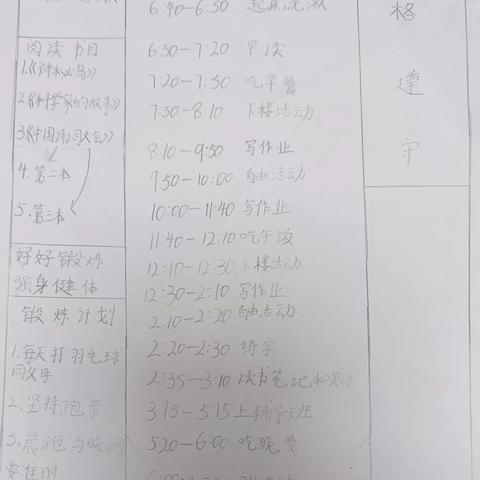 6:40-6:50 起床,洗漱
阅读书目
1.《神秘岛》
2.《科学家的故事》
3.《中国诗词大会》
4.第二本
5.第三本
好好锻炼
强身健体
锻炼计划
1.每天打羽毛球
同父母
2.坚持跑步
3.晨跑与晚跑
要准时
6:50-7:20 早读
7:20-7:50 吃早餐
7:50-8:10 下楼活动
8:10-9:50 写作业
9:50-10:00 自由活动
10:00-11:40 写作业
11:40-12:10 吃午饭
12:10-12:30 下楼活动
12:30-2:10 写作业
2:10-2:20 自由活动
2:20-2:30 练字
2:35-3:10 读书笔记和
3:15-5:15 上辅导班
5:20-6:00 吃晚餐
格
遵
守